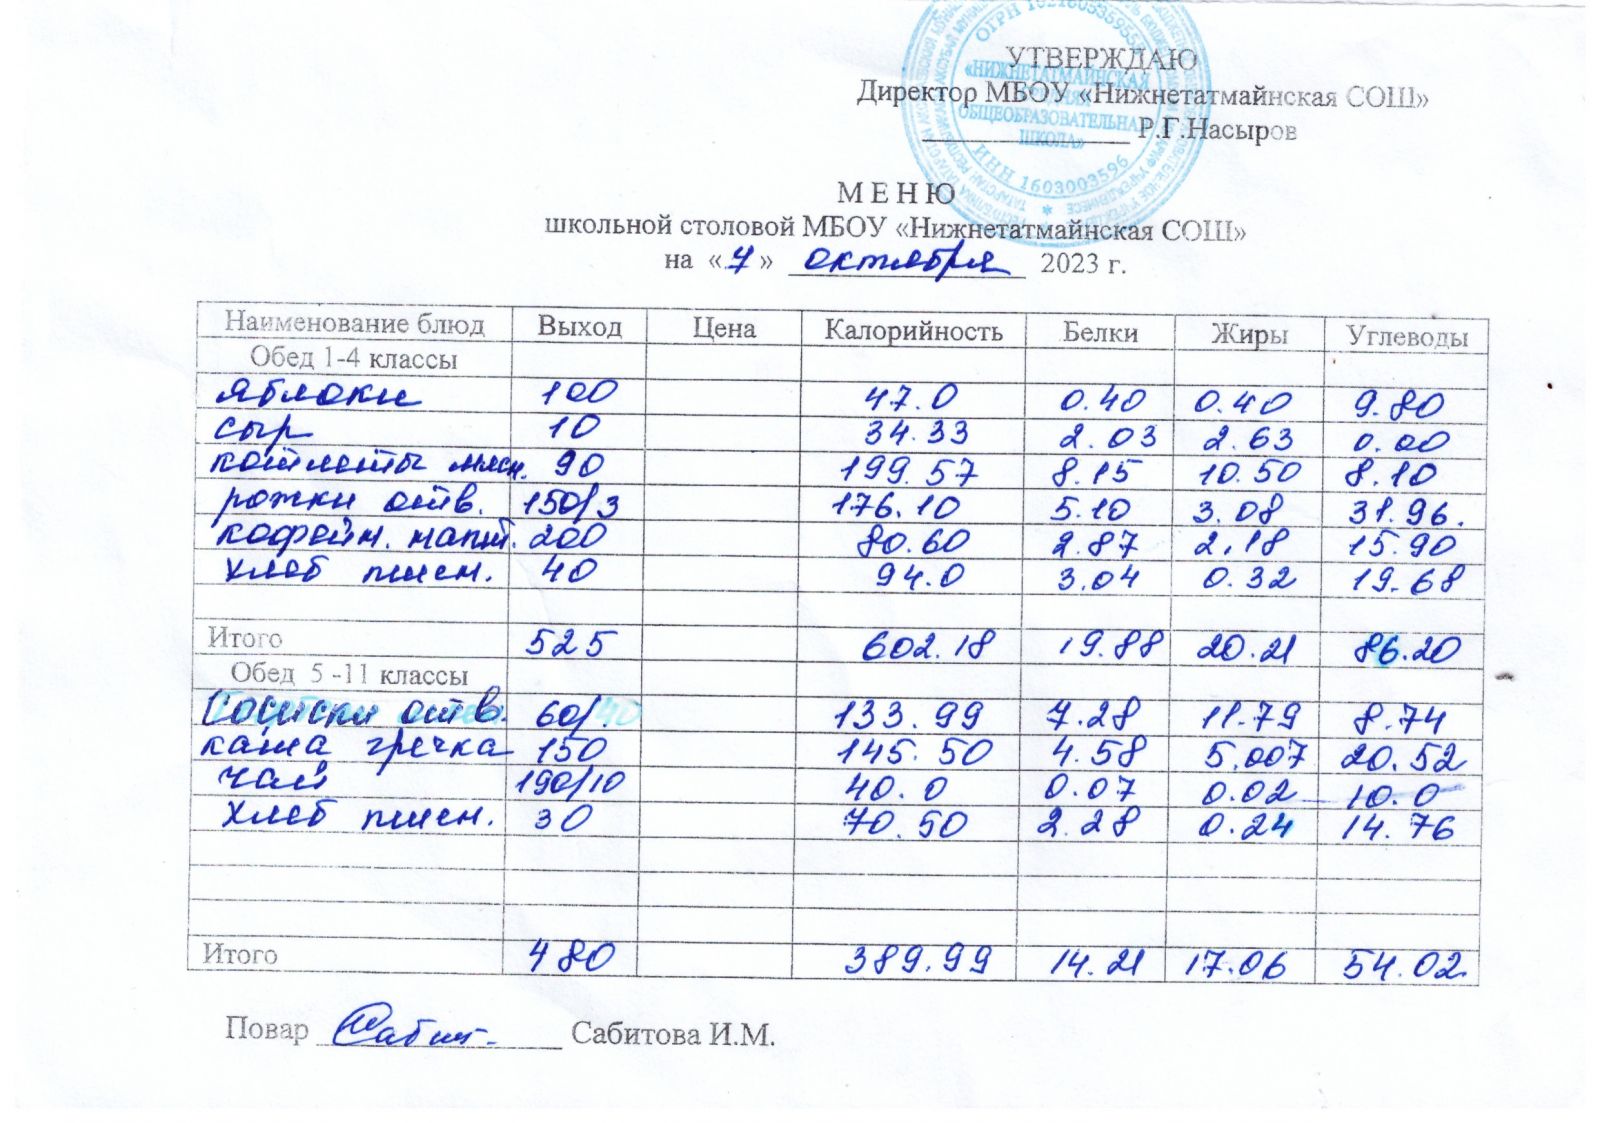 УТВЕРЖДАЮ
Директор МБОУ «Нижнетатмайнская СОШ»
Р.Г.Насыров
ОГРН
«НИЖНЕТАТМАЙНСКАЯ
СРЕДНЯЯ
ОБЩЕОБРАЗОВАТЕЛЬНАЯ
ШКОЛА»
ИНН 1603003596
М Е Н Ю
школьной столовой МБОУ «Нижнетатмайнская СОШ»
на «7» октября 2023 г.
Наименование блюд Выход Цена Калорийность Белки Жиры Углеводы
Обед 1-4 классы
яблоки 100 47.0 0.40 0.40 9.80
сыр 10 34.33 2.03 2.63 0.00
котлеты мясн. 90 199.57 8.15 10.50 8.10
рожки отв. 150/3 176.10 5.10 3.08 31.96.
кофейн. напит. 200 80.60 2.87 2.18 15.90
хлеб пшен. 40 94.0 3.04 0.32 19.68
Итого 525 602.18 19.88 20.21 86.20
Обед 5 -11 классы
Сосиски отв. 60/. 133.99 7.28 11.79 8.74
каша гречка 150 145.50 4.58 5.007 20.52
чай 190/10 40.0 0.07 0.02 10.0
хлеб пшен. 30 70.50 2.28 0.24 14.76
Итого 480 389.99 14.21 17.06 54.02.
Повар Сабит. Сабитова И.М.